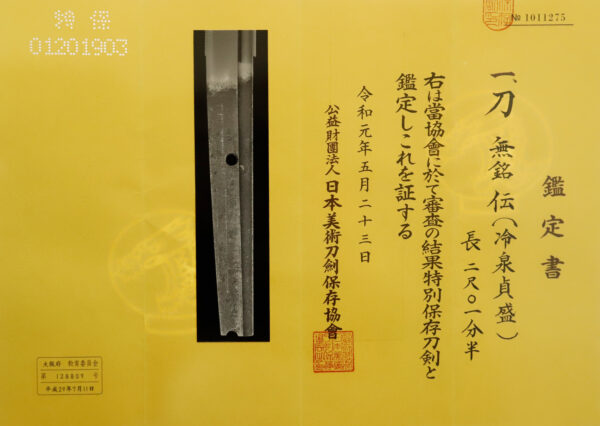 № 1011275
鑑定書
一、刀 無銘 伝(冷泉貞盛)
長 二尺〇一分半
右は當協會に於て審査の結果特別保存刀剣と
鑑定しこれを証する
令和元年五月二十三日
公益財團法人 日本美術刀劍保存協會
特保
01201903
大阪府 教育委員会
第 128809 号
平成29年7月11日